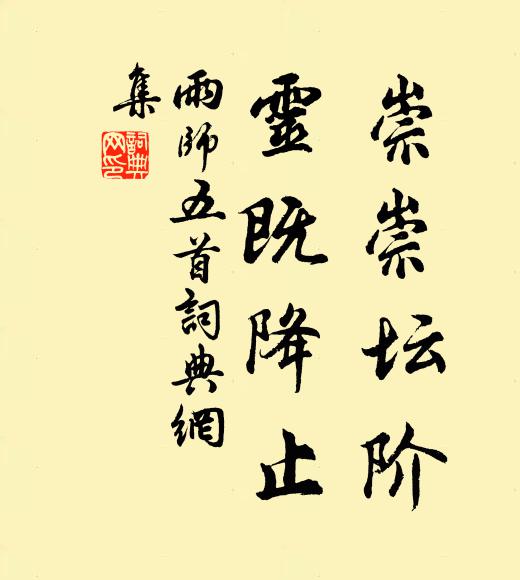 崇崇坛阶
靈既降止
雨師五首詞典網
集
詞典
网印